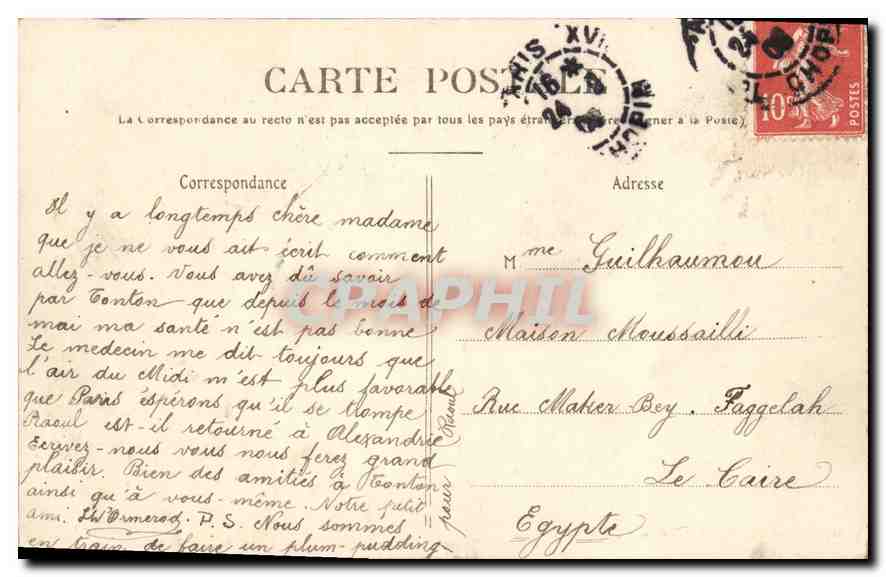 CARTE POSTALE
La Correspondance au recto n'est pas acceptée par tous les pays à la Poste)
Correspondance
Il y a longtemps chère madame
que je ne vous ait écrit comment
allez-vous. Vous avez dû savoir
par Tonton que depuis le mois de
mai ma santé n'est pas bonne
Le medecin me dit toujours que
l'air du Midi m'est plus favorable
que Paris éspérons qu'il se trompe
Raoul est-il retourné à Alexandrie
Ecrivez-nous vous nous ferez grand
plaisir. Bien des amitiés à Tonton
ainsi qu'à vous-même. Notre petit
ami. Ormerod. P.S. Nous sommes
en train de faire un plum-pudding
pour Raoul
Adresse
Mme Guilhaumou
Maison Moussailli
Rue Maker Bey. Faggelah
Le Caire
Egypte
PARIS XVII
16
24
CHOPIN
24
CHOPIN
10c
POSTES
CPAPHIL